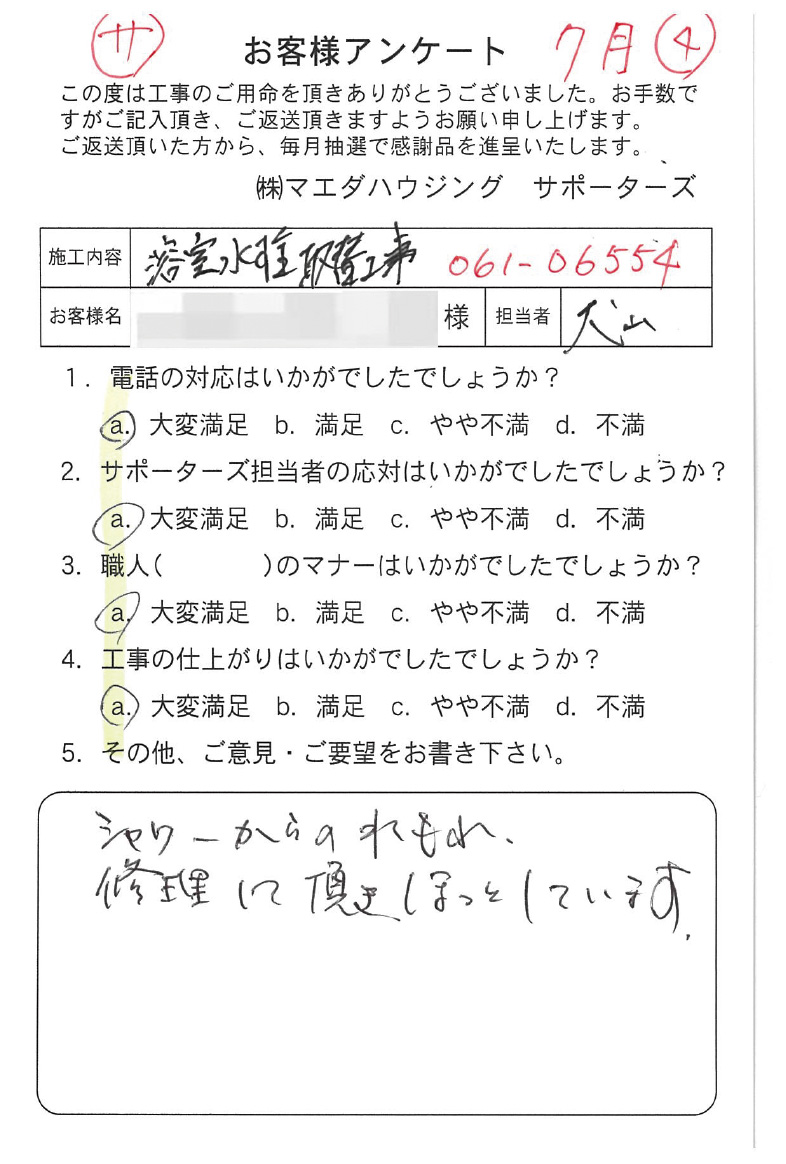 サ お客様アンケート 7月 4
この度は工事のご用命を頂きありがとうございました。お手数で
すがご記入頂き、ご返送頂きますようお願い申し上げます。
ご返送頂いた方から、毎月抽選で感謝品を進呈いたします。
㈱マエダハウジング サポーターズ
施工内容 浴室水栓取替工事 061-06554
お客様名 様 担当者 犬山
1. 電話の対応はいかがでしたでしょうか?
a. 大変満足 b. 満足 c. やや不満 d. 不満
2. サポーターズ担当者の応対はいかがでしたでしょうか?
a. 大変満足 b. 満足 c. やや不満 d. 不満
3. 職人( )のマナーはいかがでしたでしょうか?
a. 大変満足 b. 満足 c. やや不満 d. 不満
4. 工事の仕上がりはいかがでしたでしょうか?
a. 大変満足 b. 満足 c. やや不満 d. 不満
5. その他、ご意見・ご要望をお書き下さい。
シャワーからの水もれ、
修理して頂きほっとしています。